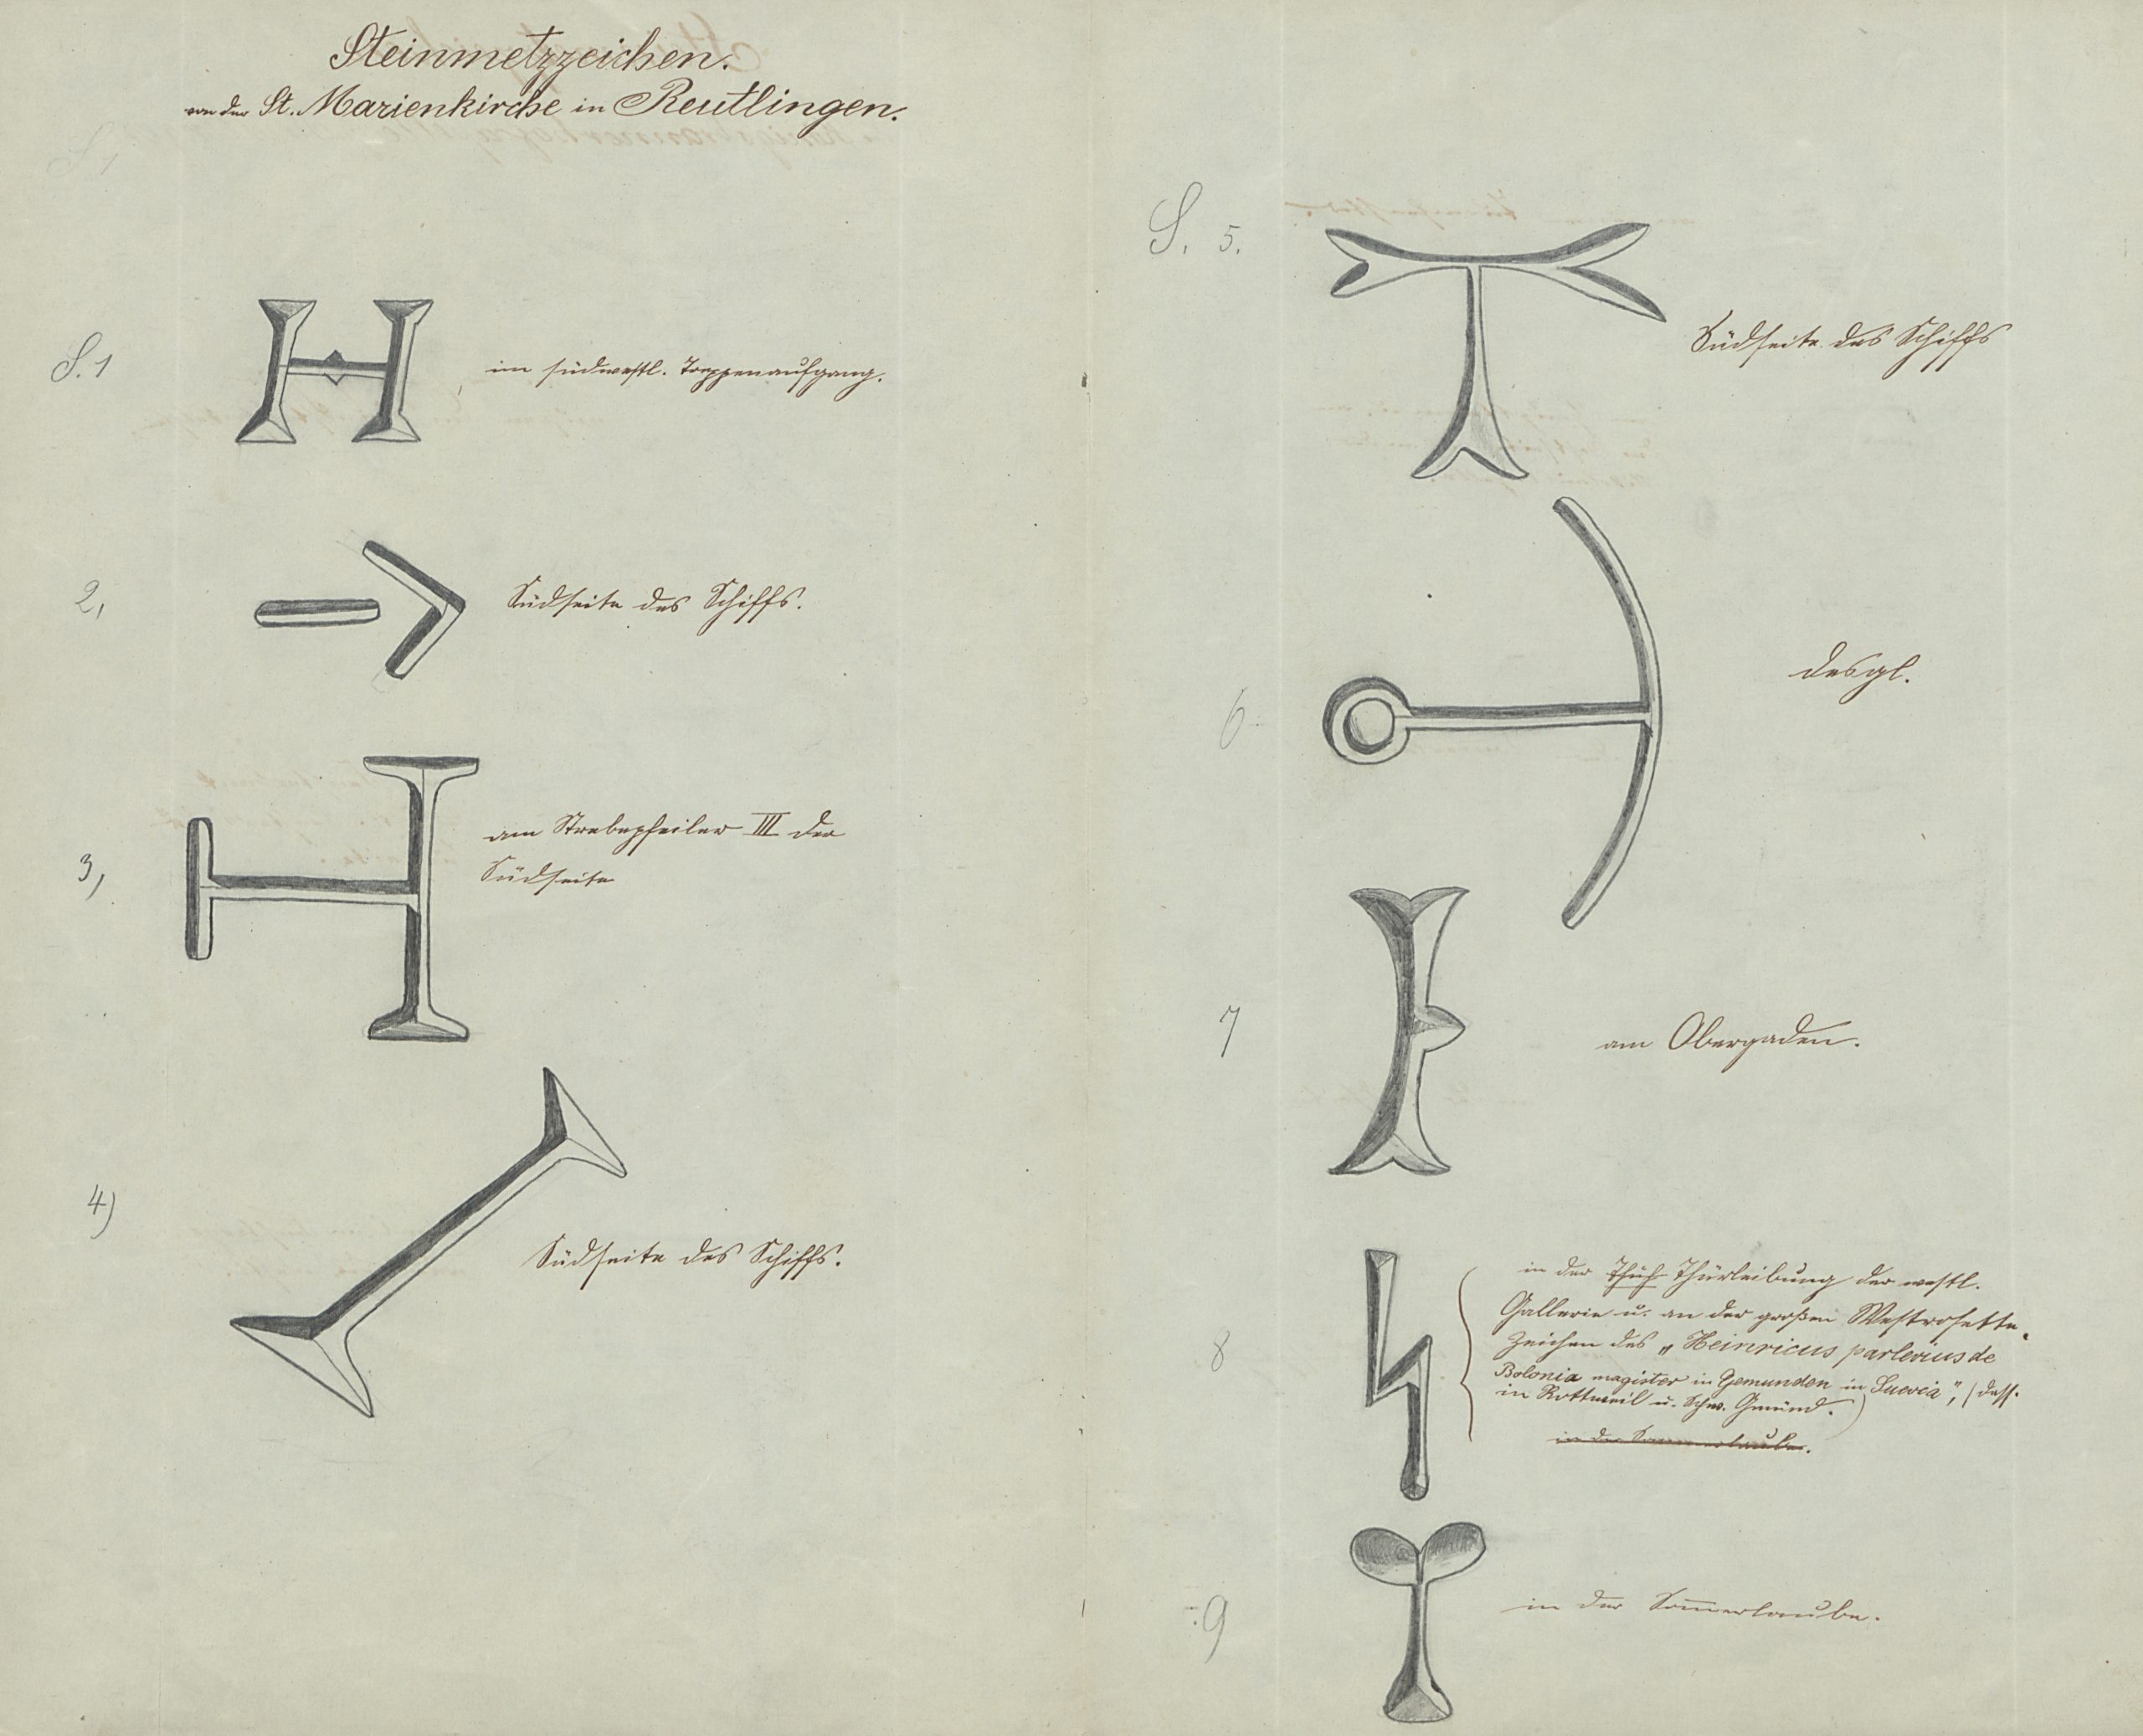 Steinmetzzeichen.
von der St. Marienkirche in Reutlingen.
S. 1
im südwestl. Treppenaufgang.
2,
Südseite des Schiffs.
3,
am Strebepfeiler III der
Südseite
4)
Südseite des Schiffs.
S. 5.
Südseite des Schiffs
6
desgl.
7
am Obergaden.
8
in der Thürleibung der westl.
Gallerie u. an der großen Westrosette.
Zeichen des „Heinricus parlerius de
Bolonia magister in Gemunden in Suevia", (dess.
in Rottweil u. Schw. Gmünd.)
in der Sommerlaube.
9
in der Som̄erlaube.